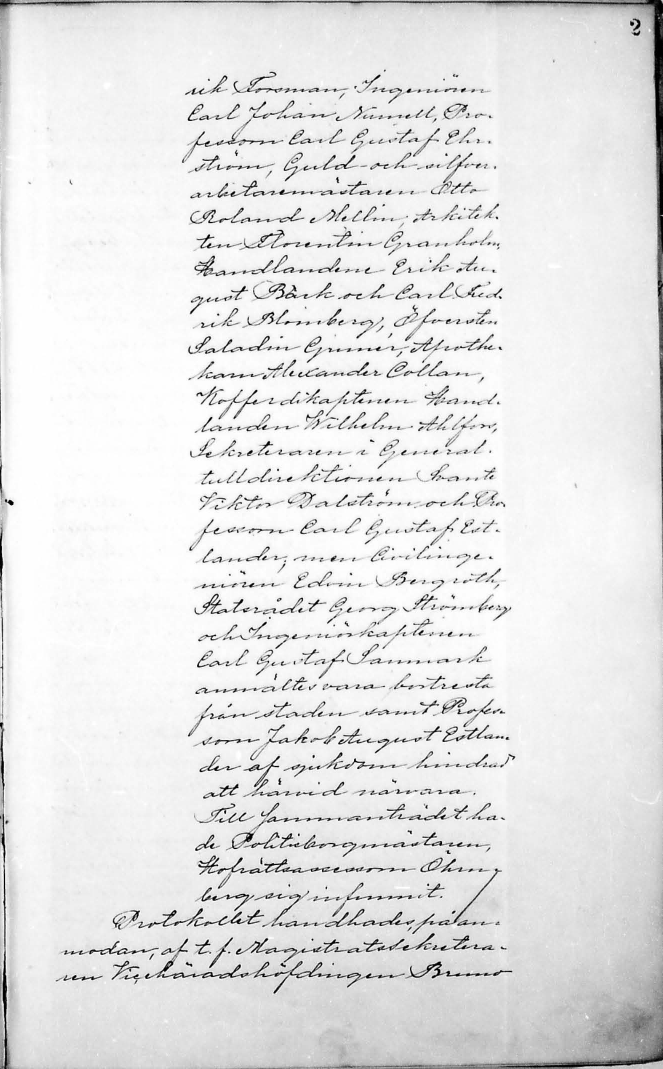 2
rik Forsman, Ingeniören
Carl Johan Numell, Pro-
fessorn Carl Gustaf Ehr-
ström, Guld- och silfver-
arbetaremästaren Otto
Roland Mellin, Arkitek-
ten Florentin Granholm,
Handlandene Erik Au-
gust Bäck och Carl Fred-
rik Blomberg, Öfversten
Saladin Grunér, Apothe-
karn Alexander Collan,
Kofferdikaptenen Hand-
landen Wilhelm Ahlfors,
Sekreteraren i General-
tulldirektionen Svante
Viktor Dalström och Pro-
fessorn Carl Gustaf Est-
lander, men Civilinge-
niören Edvin Bergroth,
Statsrådet Georg Strömberg
och Ingeniörkaptenen
Carl Gustaf Sanmark
anmältes vara bortresta
från staden samt Profes-
sorn Jakob August Estlan-
der af sjukdom hindrad
att härvid närvara.
Till Sammanträdet ha-
de Politieborgmästaren,
Hofrättsassessorn Öhrn-
berg sig infunnit.
Protokollet handhades, på an-
modan, af t. f. Magistratssekretera-
ren Vicehäradshöfdingen Bruno